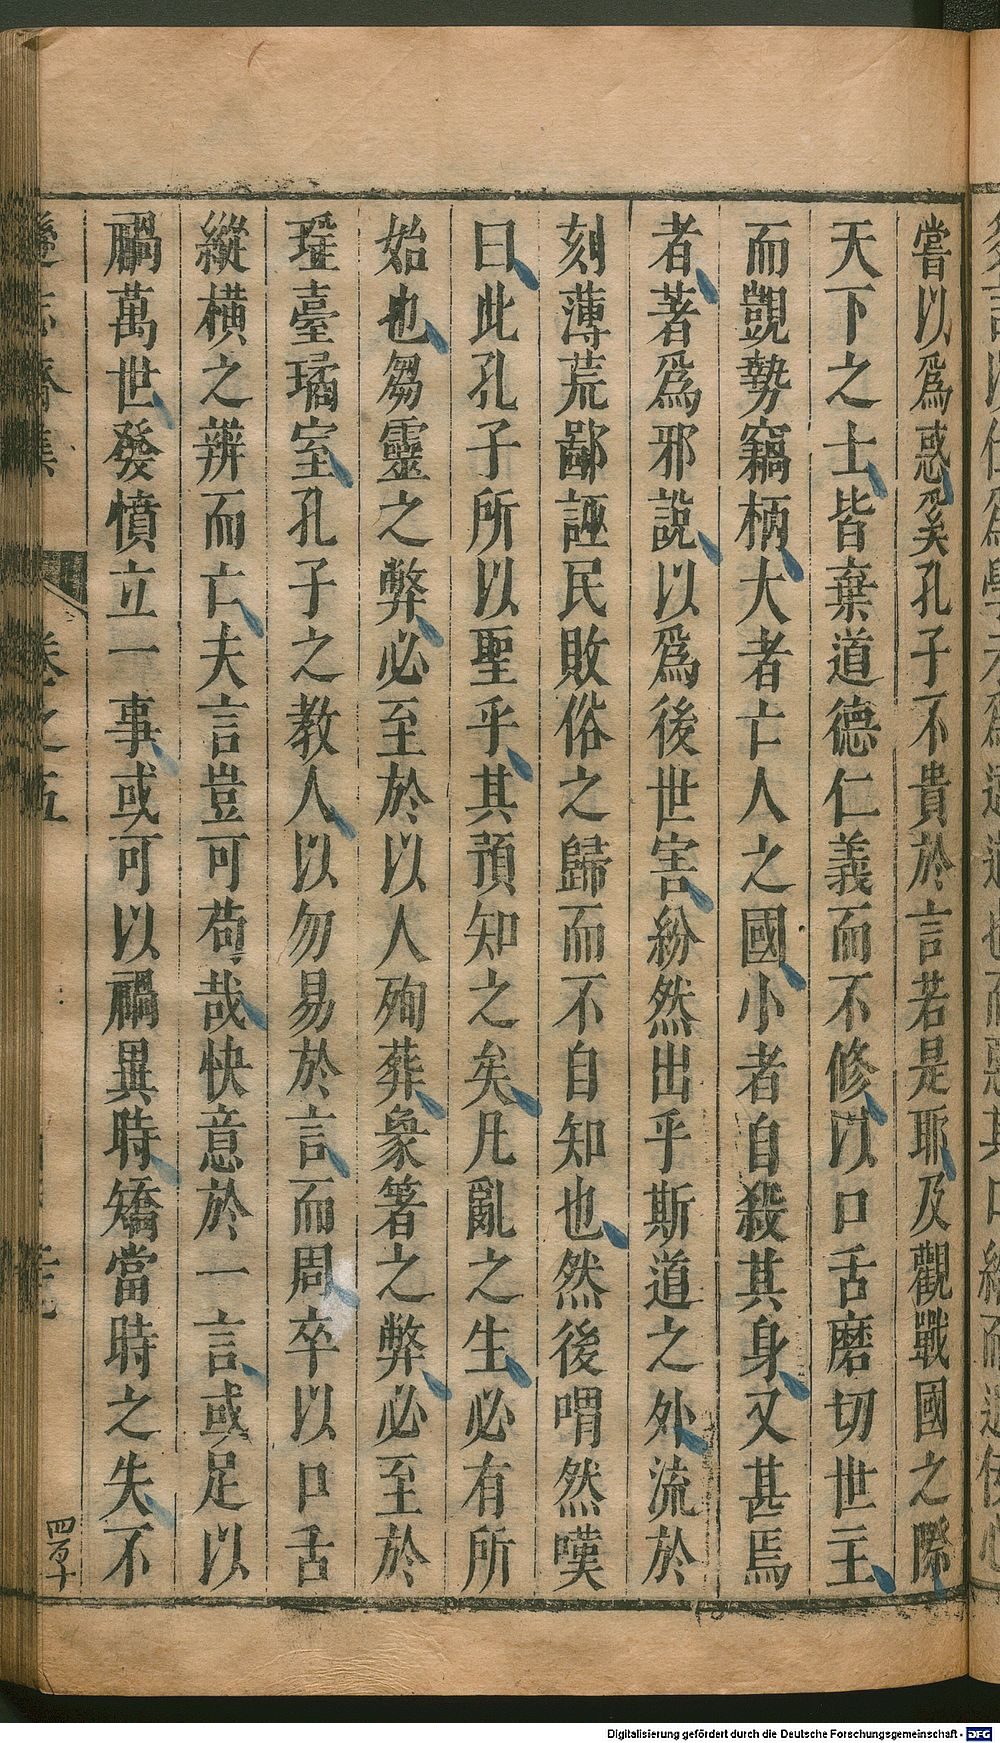 嘗以爲惑矣孔子不貴於言若是耶及觀戰國之際
天下之士皆棄道德仁義而不修以口舌磨切世主
而覬勢竊柄大者亡人之國小者自殺其身又甚焉
者著爲邪說以爲後世害紛然出乎斯道之外流於
刻薄荒鄙誣民敗俗之歸而不自知也然後喟然嘆
曰此孔子所以聖乎其預知之矣凡亂之生必有所
始也芻靈之弊必至於以人殉葬象箸之弊必至於
瑤臺璚室孔子之教人以勿易於言而周卒以口舌
縱横之辨而亡夫言豈可苟哉快意於一言或足以
禍萬世發憤立一事或可以禍異時矯當時之失不
遜志齋集 卷之五
四百十
Digitalisierung gefördert durch die Deutsche Forschungsgemeinschaft - DFG